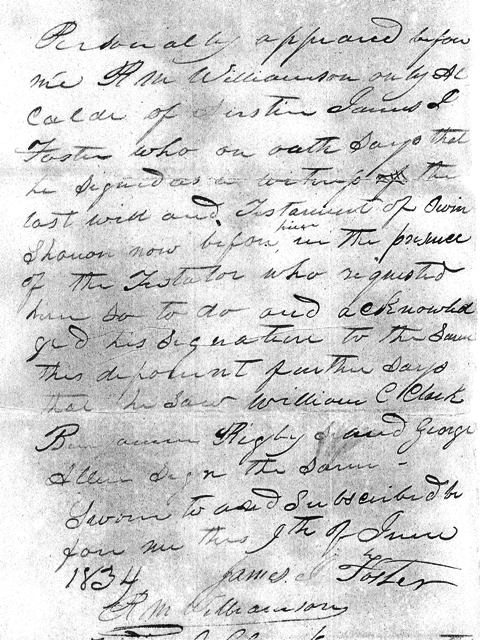 Personally appeared before
me R M Williamson only Al
calde of Austin James I
Foster who on oath Says that
he Signed as a witness of the
last will and Testament of Owen
Shanon now before him in the presence
of the Testator who requested
him So to do and acknowled
ged his Signature to the Same
this deponent further Says
that he Saw William C Clark
Benjamin Rigby and George
Allen Sign the Same -
Sworn to and Subscribed be
fore me this 9th of June
1834 James I Foster
R M Williamson